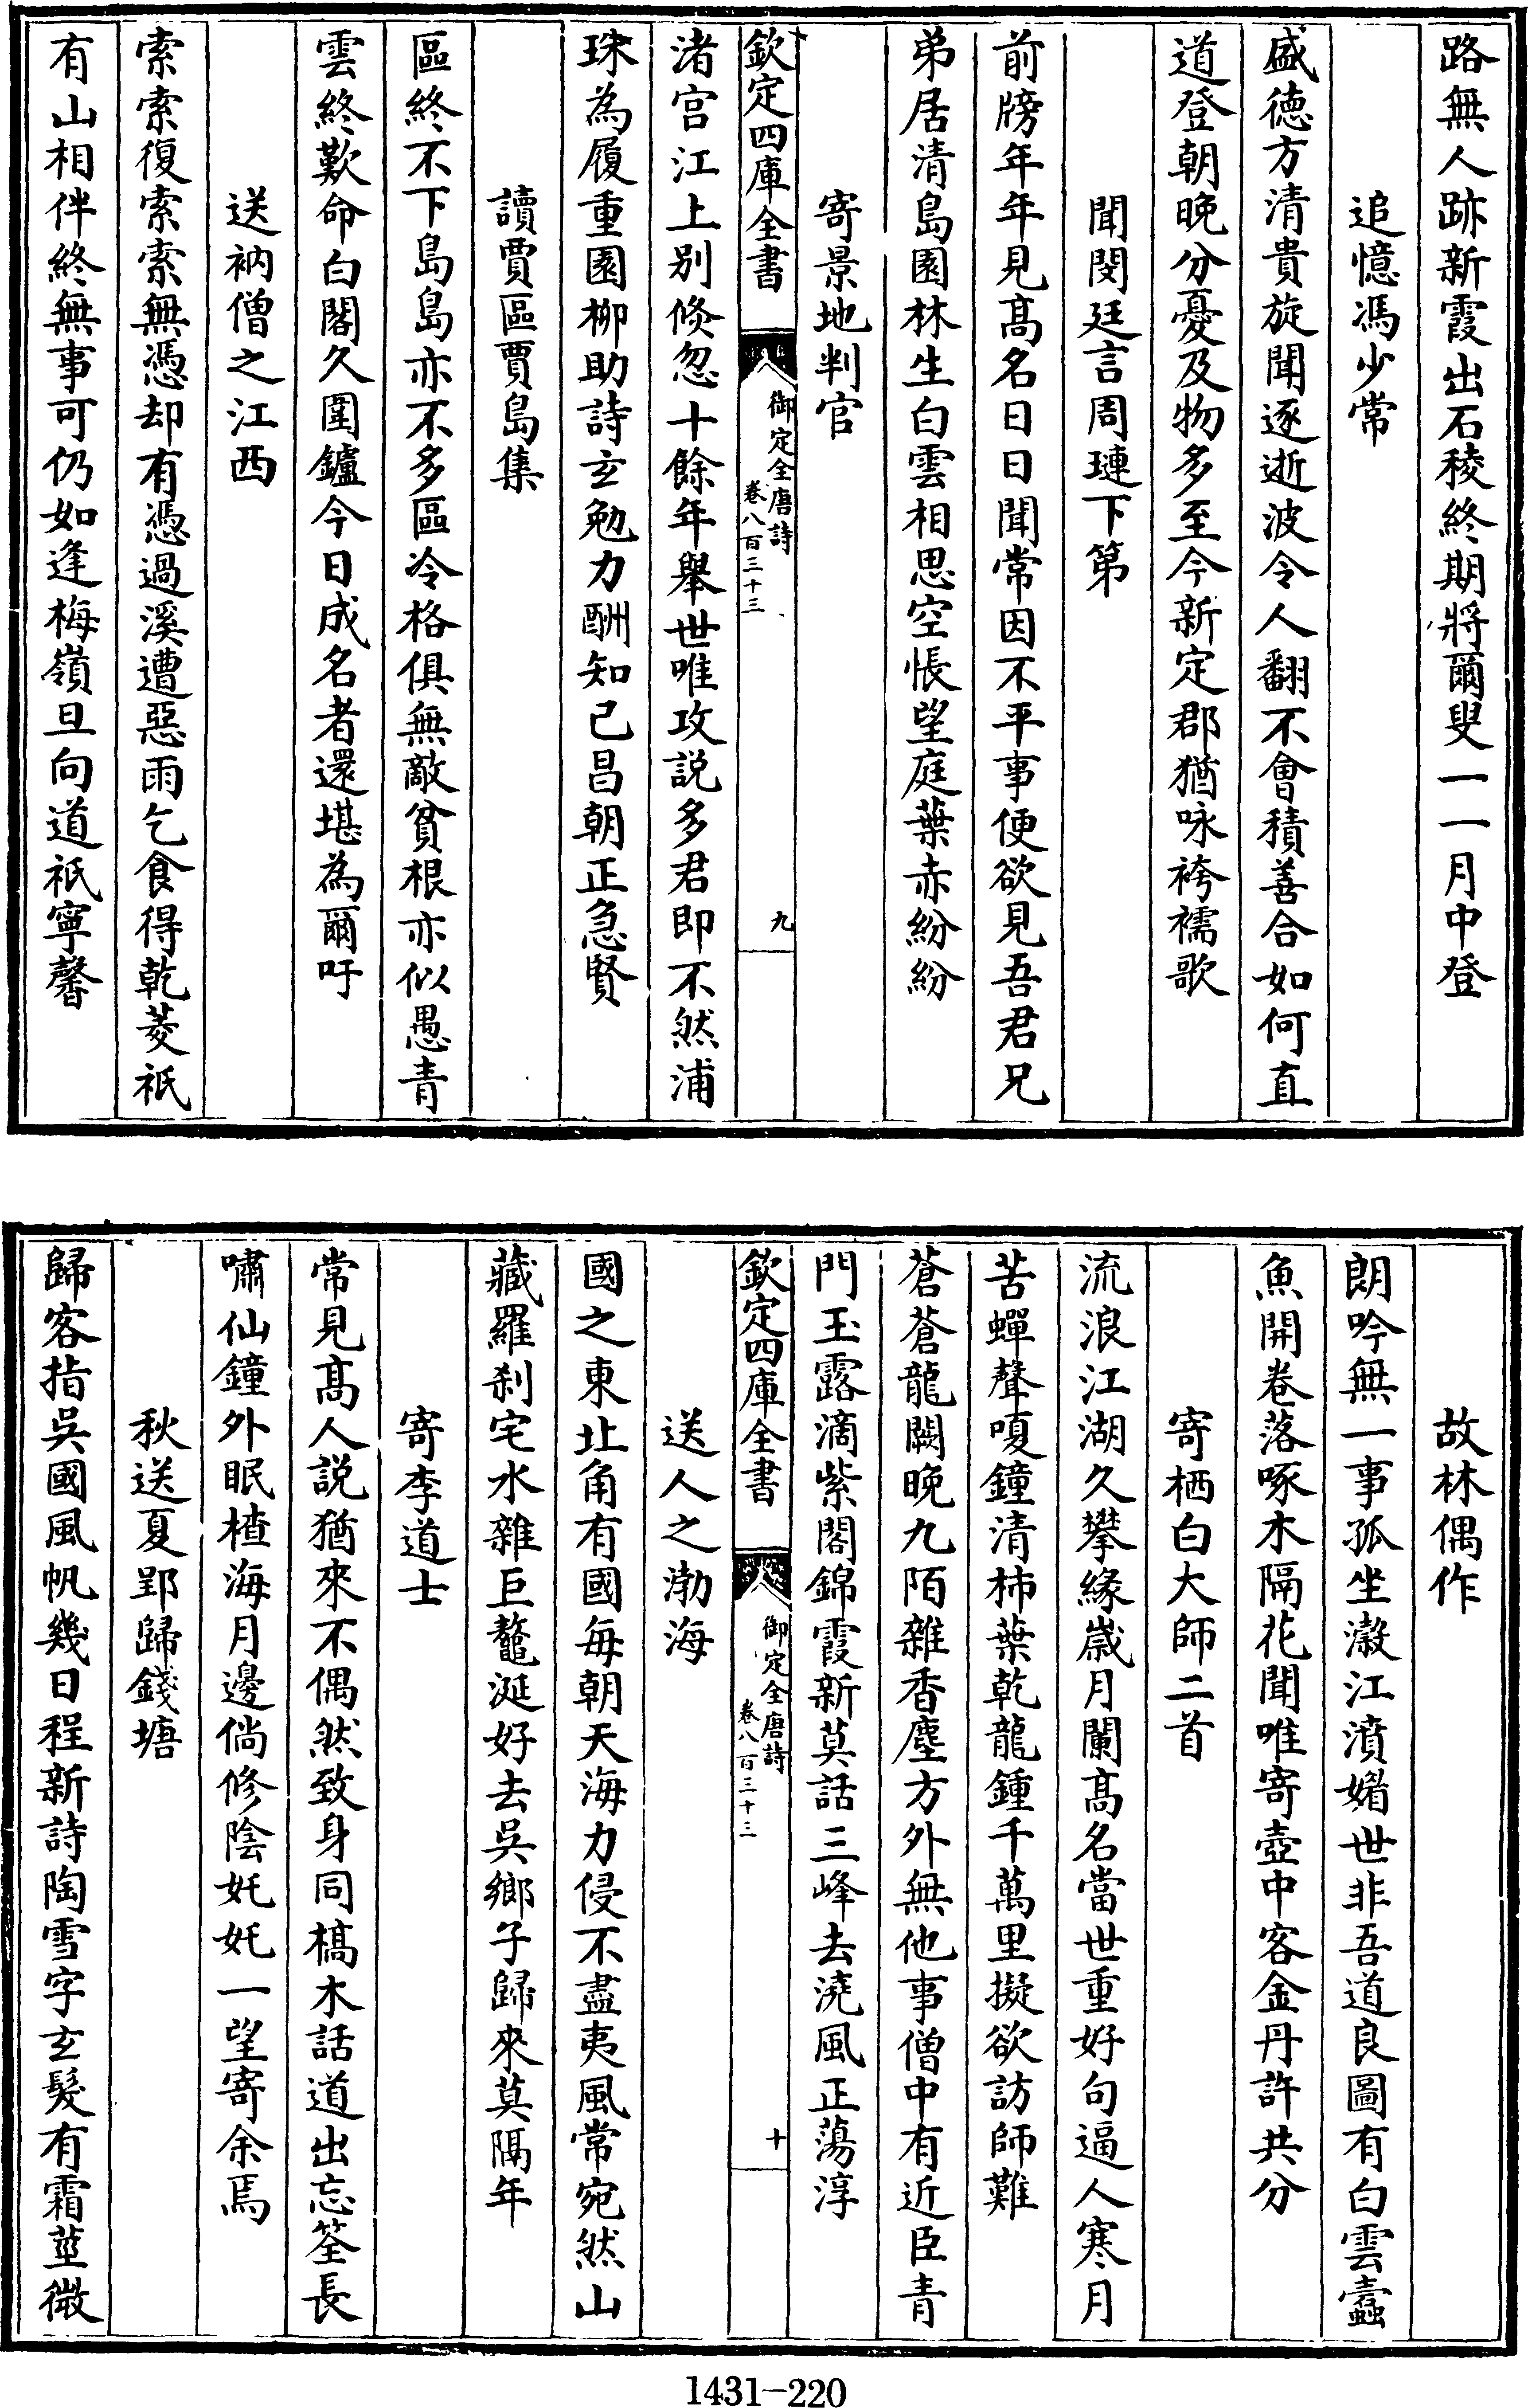 路無人跡新霞出石稜終期將爾叟一一月中登
追憶馮少常
盛德方清貴旋聞逐逝波令人翻不會積善合如何直
道登朝晚分憂及物多至今新定郡猶咏袴襦歌
聞閔廷言周璉下第
前牓年年見髙名日日聞常因不平事便欲見吾君兄
弟居清島園林生白雲相思空悵望庭葉赤紛紛
寄景地判官
欽定四庫全書
御定全唐詩
卷八百三十三
九
渚宫江上别倐忽十餘年舉世唯攻説多君即不然浦
珠為履重園柳助詩玄勉力酬知己昌朝正急賢
讀賈區賈島集
區終不下島島亦不多區冷格俱無敵貧根亦似愚青
雲終歎命白閣久圍鑪今日成名者還堪為爾吁
送衲僧之江西
索索復索索無憑却有憑過溪遭惡雨乞食得乾菱祇
有山相伴終無事可仍如逢梅嶺旦向道祇寧馨
故林偶作
朗吟無一事孤坐瀫江濆媚世非吾道良圖有白雲蠧
魚開卷落啄木隔花聞唯寄壺中客金丹許共分
寄栖白大師二首
流浪江湖久攀緣歲月闌髙名當世重好句逼人寒月
苦蟬聲嗄鐘清柿葉乾龍鍾千萬里擬欲訪師難
蒼蒼龍闕晚九陌雜香塵方外無他事僧中有近臣青
門玉露滴紫閣錦霞新莫話三峰去澆風正蕩淳
欽定四庫全書
御定全唐詩
卷八百三十三
十
送人之渤海
國之東北角有國每朝天海力侵不盡夷風常宛然山
藏羅刹宅水雜巨鼇涎好去吳鄉子歸來莫隔年
寄李道士
常見髙人説猶來不偶然致身同槁木話道出忘筌長
嘯仙鐘外眠楂海月邊倘修陰奼奼一望寄余焉
秋送夏郢歸錢塘
歸客指吳國風帆幾日程新詩陶雪字玄髮有霜莖微
1431-220